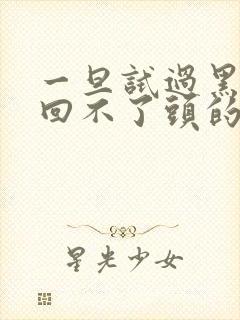 一旦試過黑
回不了頭的
星光少女